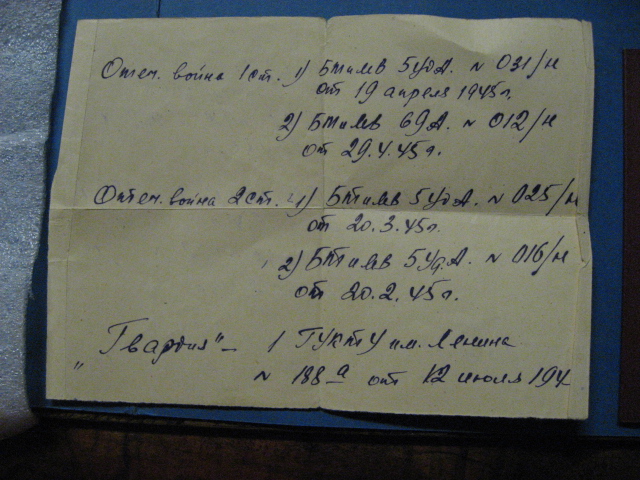 Отеч. война 1 ст. 1) БТиМВ 5 уд А. № 031/н
от 19 апреля 1945 г.
2) БТиМВ 69 А. № 012/н
от 29.4.45 г.
Отеч. война 2 ст. 1) БТиМВ 5 уд А. № 025/н
от 20.3.45 г.
2) БТиМВ 5 уд. А. № 016/н
от 20.2.45 г.
„Гвардия" – 1 ГУКТУ им. Ленина
№ 188 а от 12 июля 194